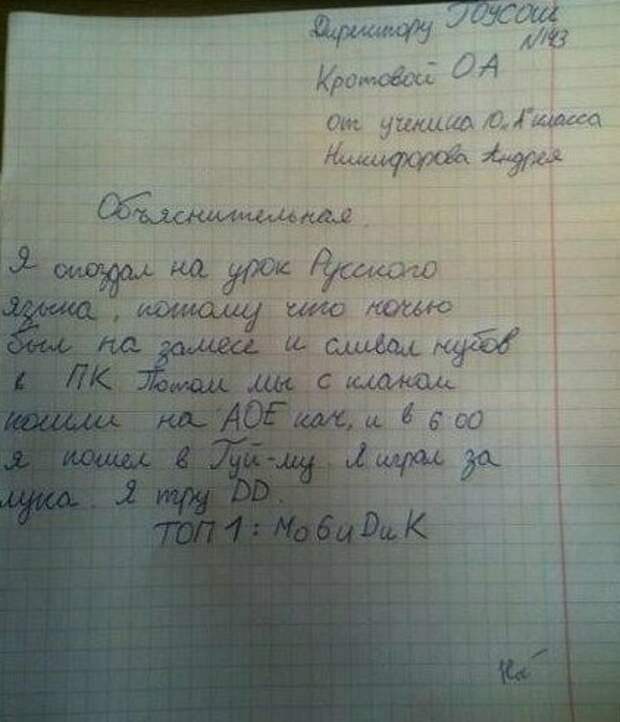 Директору ГОУСОШ
№143
Кротовой ОА
от ученика 10 „А" класса
Никифорова Андрея
Объяснительная.
Я опоздал на урок Русского
языка, потому что ночью
был на замесе и сливал нубов
в ПК Потом мы с кланом
пошли на АОЕ кач, и в 6 00
я пошел в Гуй-му. Я играл за
лука. Я тру DD.
ТОП 1: МоБиDиК